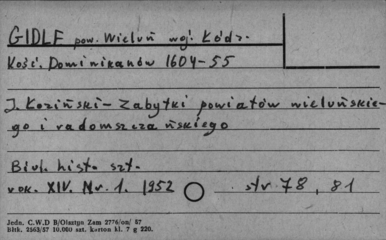 GIDLE pow. Wieluń woj. Łódz.
Kość. Dominikanów 1604-55
J. Koziński - Zabytki powiatów wieluńskie-
go i radomszczańskiego
Biul. hist. szt.
rok. XIV. Nr. 1. 1952 str. 78, 81
Jedn. C.W.D B/Olsztyn Zam 2776/on/ 57
bltk. 2563/57 10.000 szt. karton kl. 7 g 220.